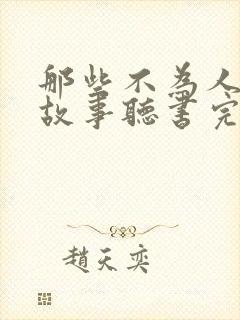 那些不為人
故事聽書完
趙天奕